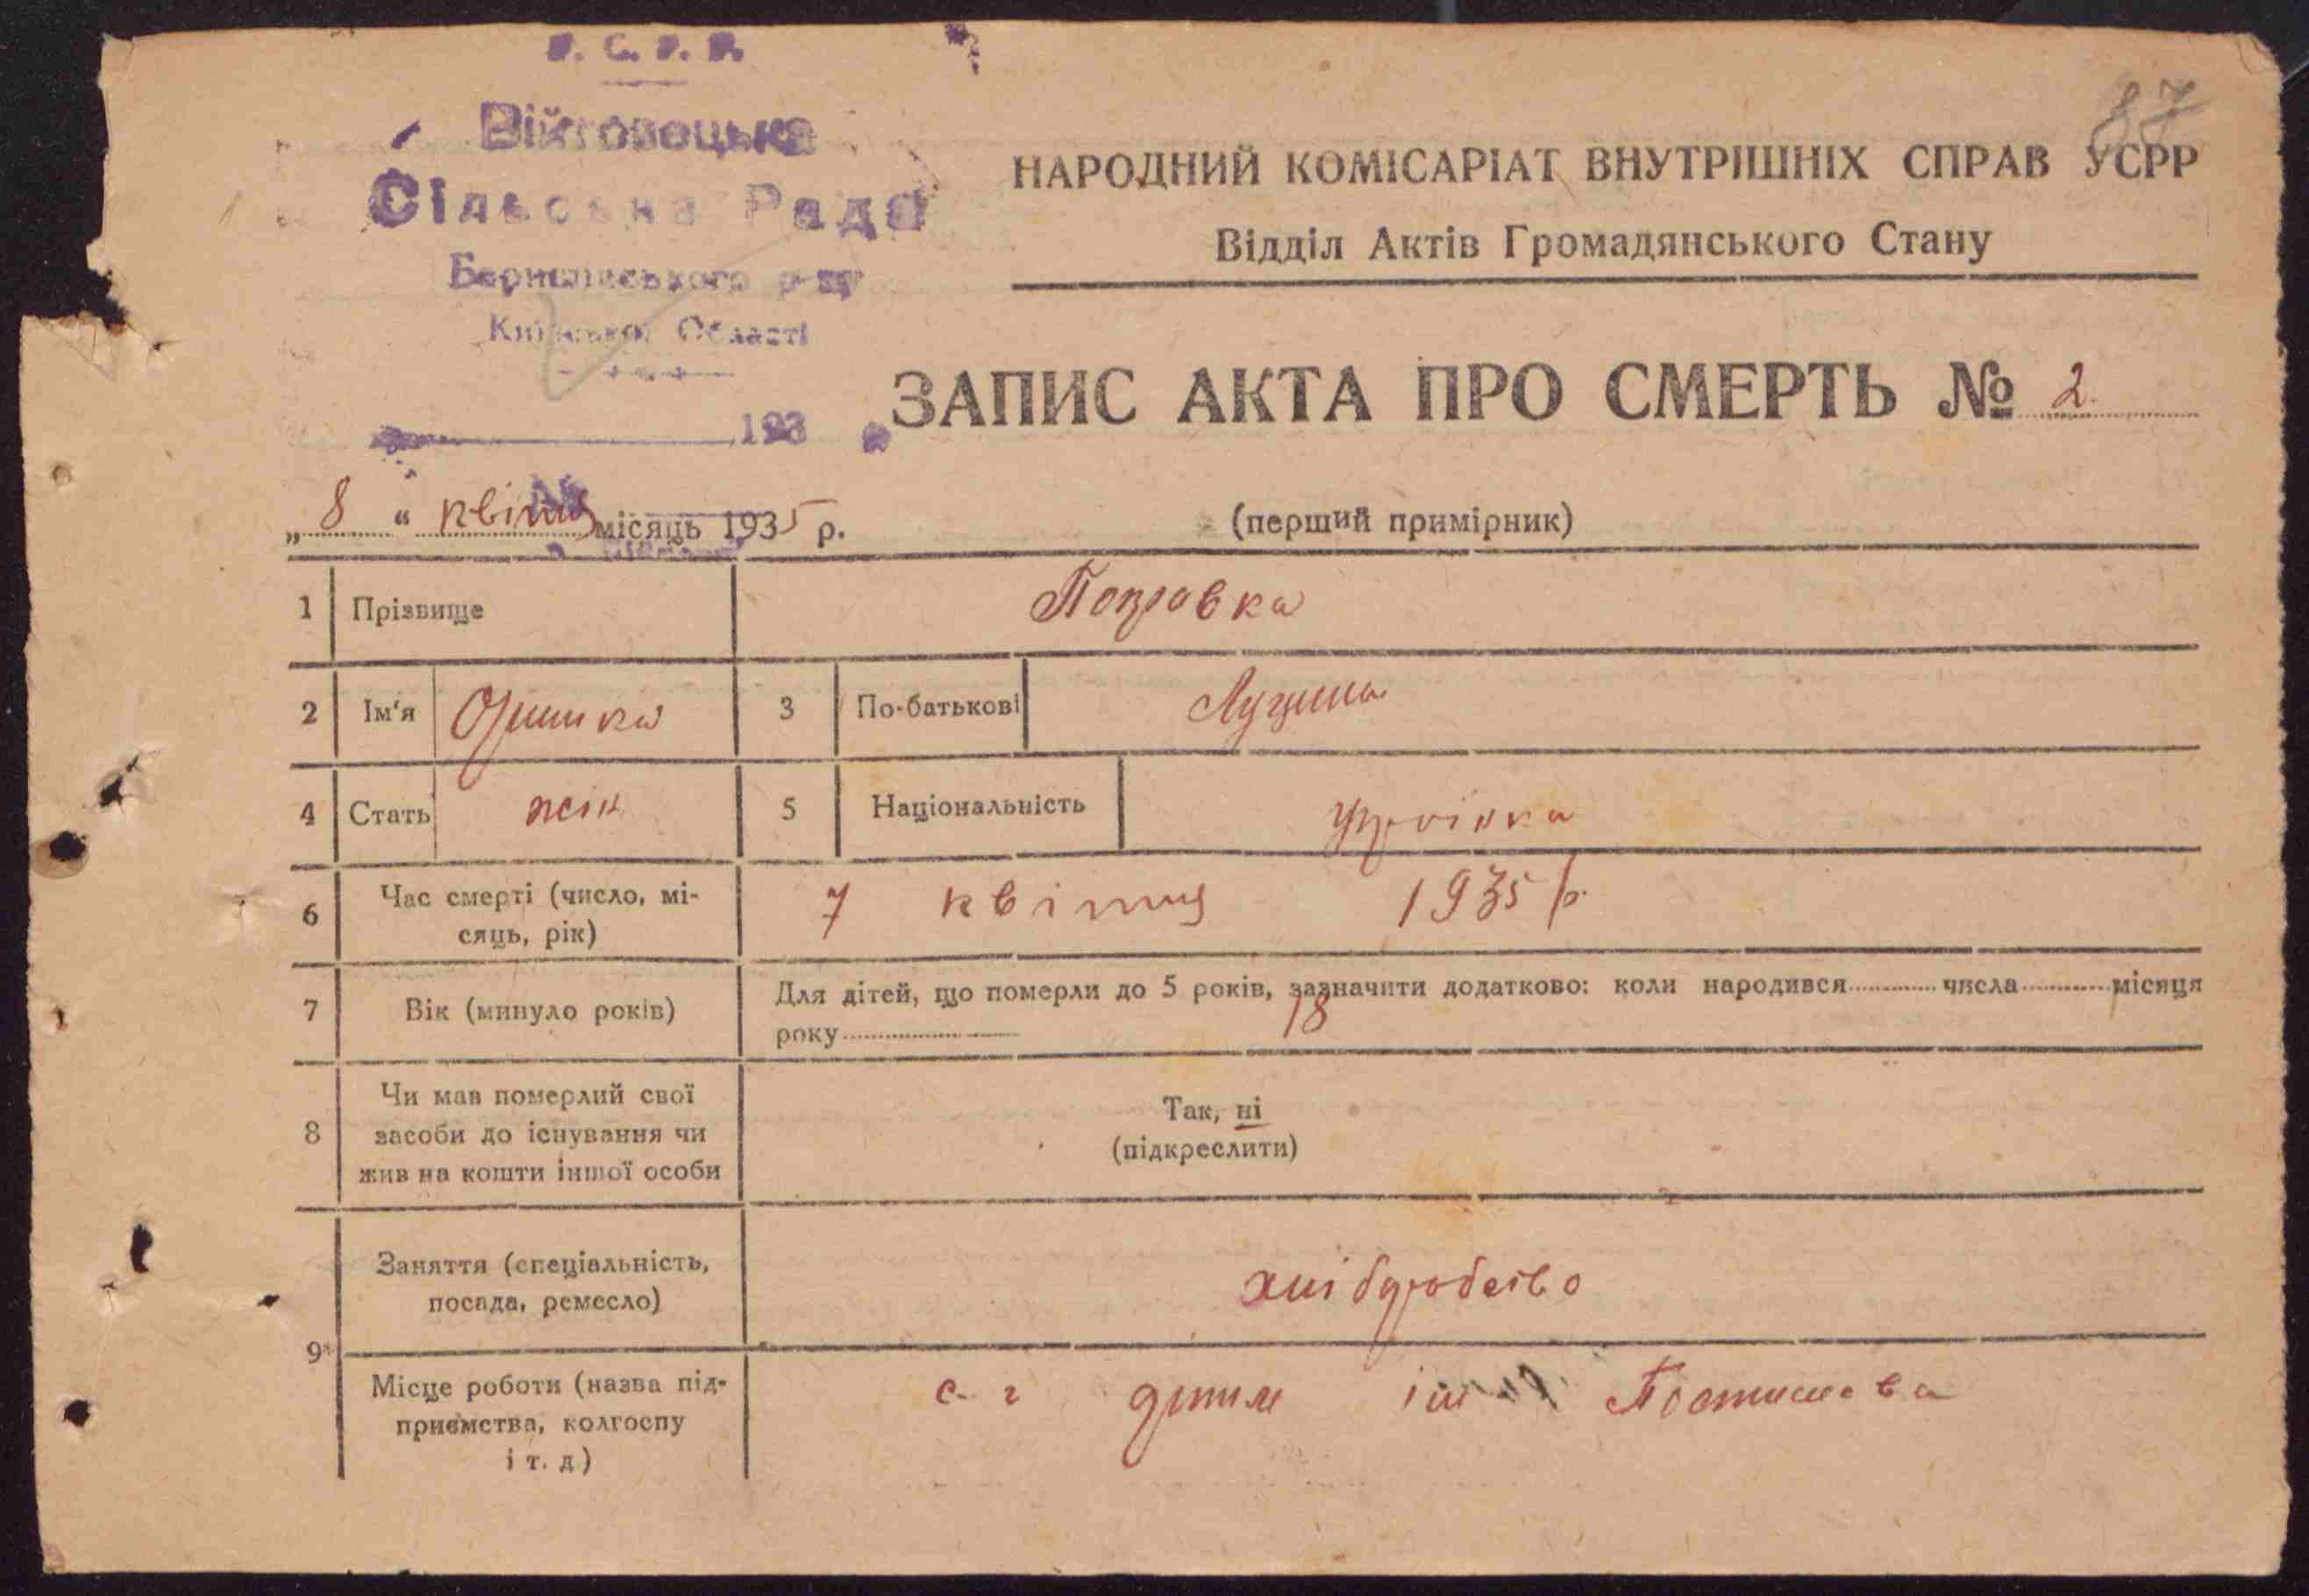 У. С. Р. Р.
Війтовецька
Сільська Рада
р-ну
Київської Області
193
87
НАРОДНИЙ КОМІСАРІАТ ВНУТРІШНІХ СПРАВ УСРР
Відділ Актів Громадянського Стану
ЗАПИС АКТА ПРО СМЕРТЬ № 2
„ 8 “ квітня місяць 1935 р.
(перший примірник)
1 Прізвище
2 Ім‘я Оришка 3 По-батькові
4 Стать жін 5 Національність
6 Час смерті (число, мі-
сяць, рік)
7 квітня 1935 р.
7 Вік (минуло років)
Для дітей, що померли до 5 років, зазначити додатково: коли народився числа місяця
року
18
8 Чи мав померлий свої
засоби до існування чи
жив на кошти іншої особи
Так, ні
(підкреслити)
9
Заняття (спеціальність,
посада, ремесло)
хліборобство
Місце роботи (назва під-
приємства, колгоспу
і т. д.)
с. г артіль ім Постишева